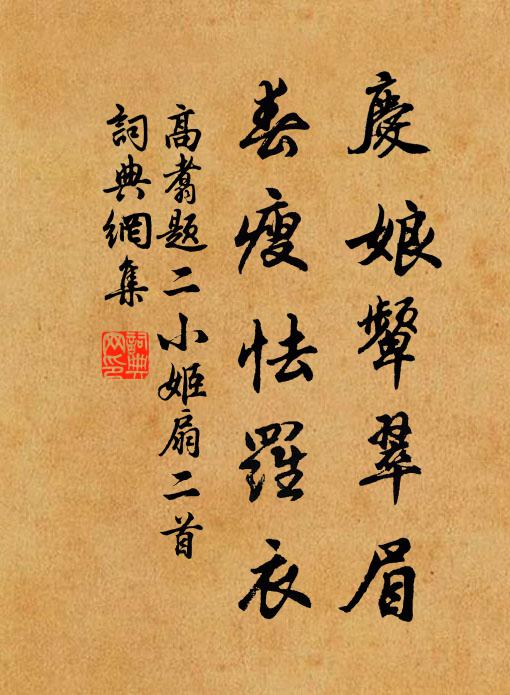 慶娘顰翠眉
春瘦怯羅衣
高翥題二小姬扇二首
詞典網集
詞典网印